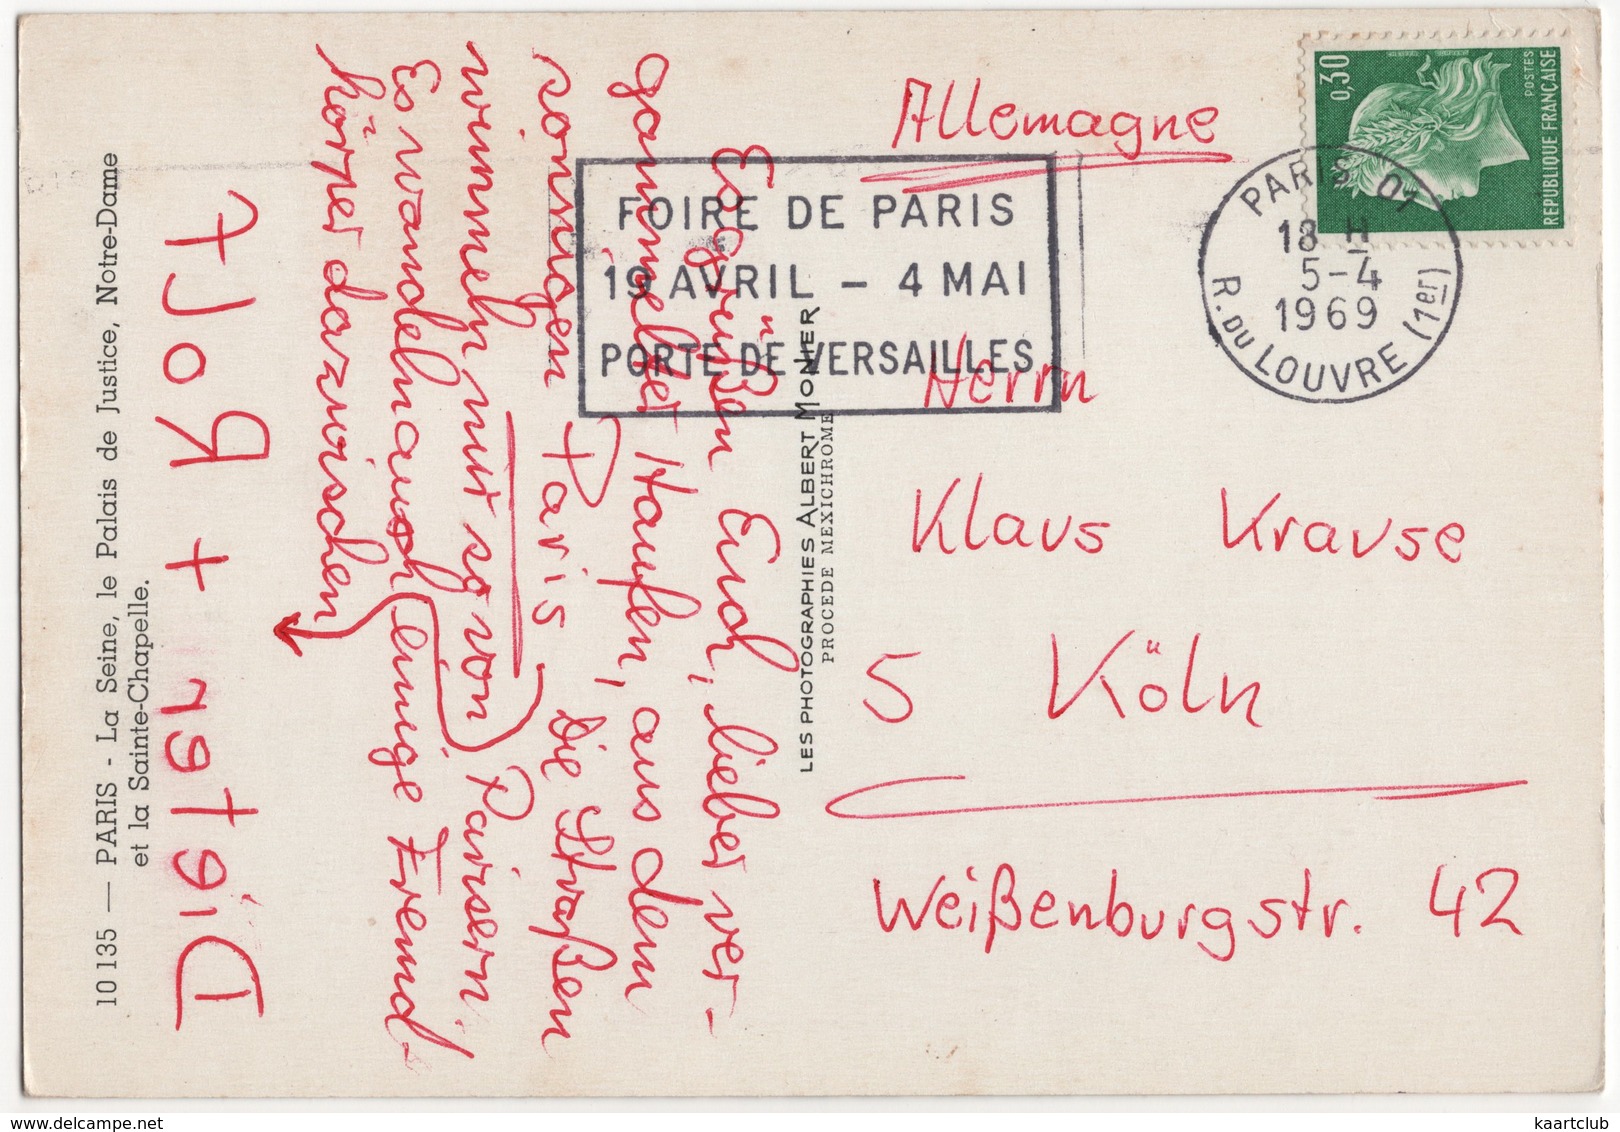 Allemagne
0,30
POSTES
REPUBLIQUE FRANÇAISE
PARIS 01
18 H
5-4
1969
R. DU LOUVRE (1er)
FOIRE DE PARIS
19 AVRIL - 4 MAI
PORTE DE VERSAILLES
Herrn
Klaus Krause
5 Köln
Weißenburgstr. 42
LES PHOTOGRAPHIES ALBERT MONIER
PROCEDE MEXICHROME
Es grüßen Euch, lieber ver-
gammelter Haufen, aus dem
sonnigen Paris. Die Straßen
wimmeln nur so von Parisern,
Es wandeln auch einige Fremd-
körper dazwischen
Dieter + Rolf
10 135 — PARIS - La Seine, le Palais de Justice, Notre-Dame
et la Sainte-Chapelle.
kaartclub